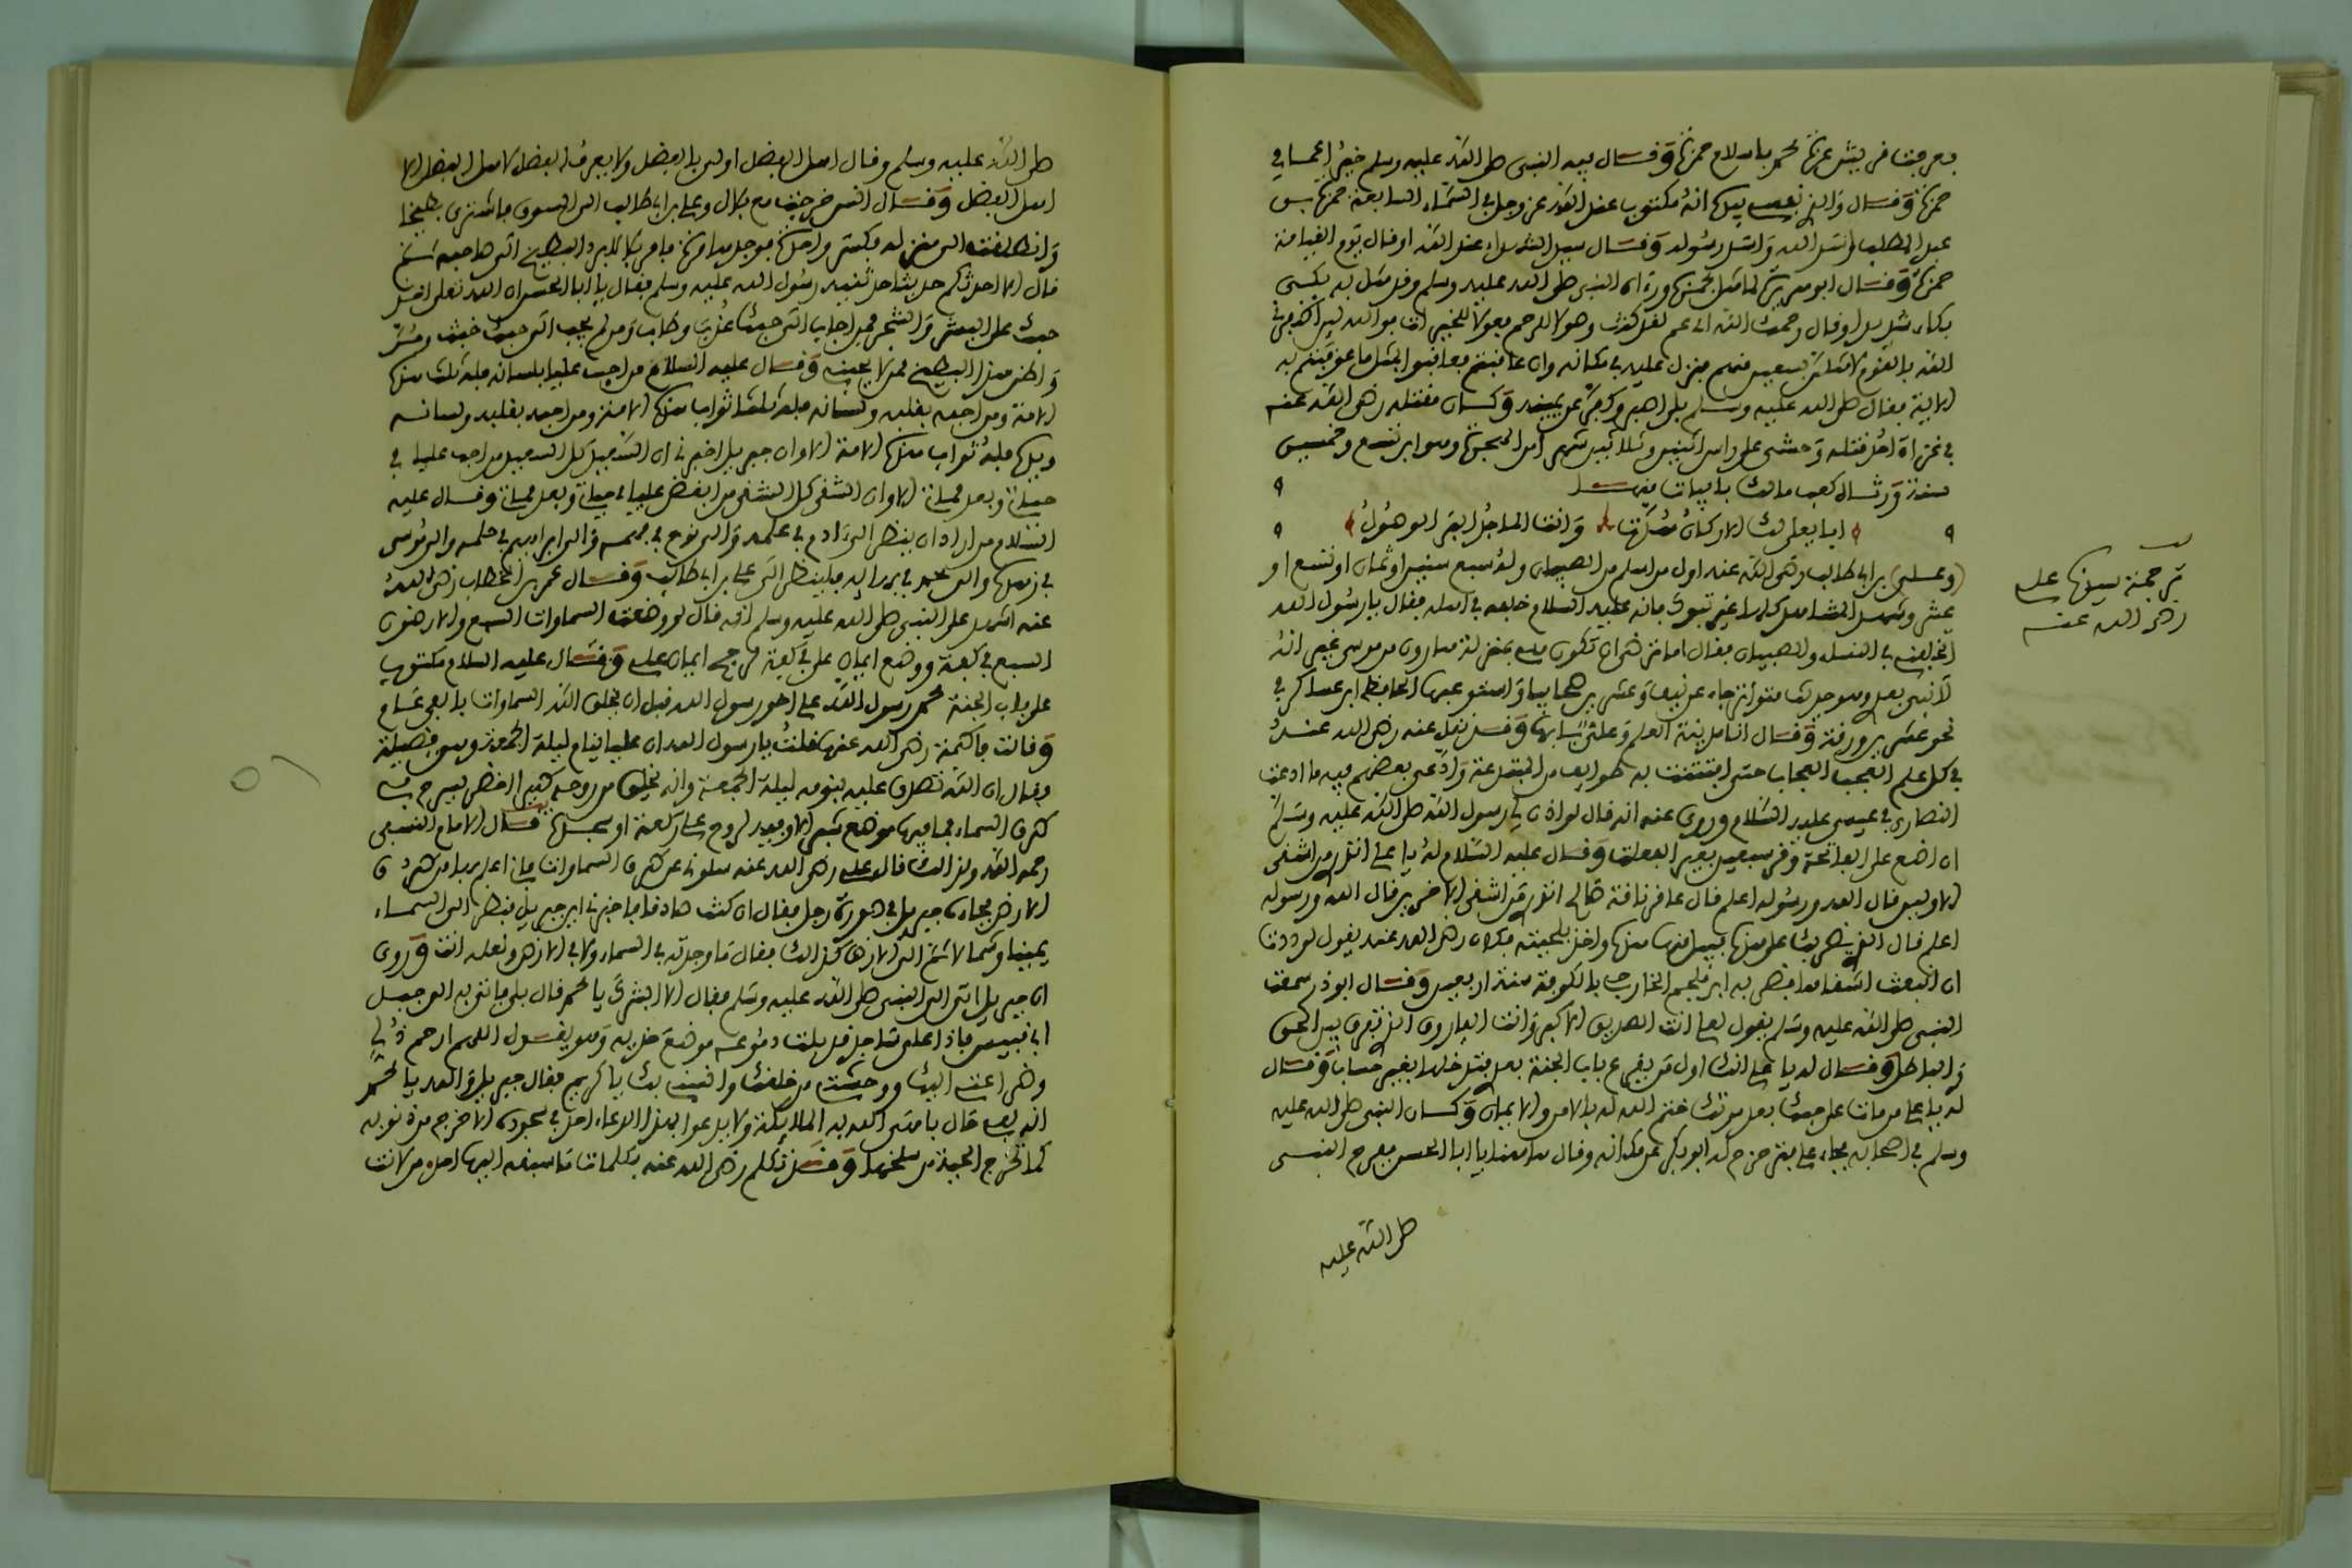 حمزة وقال والذي نفسي بيده انه مكتوب عند الله عز وجل في السماء السابعة حمزة بن
عبد المطلب اسد الله واسد رسوله وقال سيد الشهداء عند الله او قال يوم القيامة
حمزة وقال ابو هريرة لما مثل بحمزة وراه النبي صلى الله عليه وسلم وقد مثل به بكى
بكاء شديدا وقال رحمك الله اي عم لقد كنت وصولا للرحم فعولا للخير
الله بالقوم لامثلن بسبعين منهم فنزل عليه في مكانه وان عاقبتم فعاقبوا بمثل ما عوقبتم به
الاية فقال صلى الله عليه وسلم بل اصبر وكفر عن يمينه وكان مقتله رضي الله عنه
في غزاة احد قتله وحشي على راس اثنين وثلاثين شهرا من الهجرة وهو ابن تسع وخمسين
سنة ورثاه كعب مالك بابيات منها
ابا يعلى لك الاركان هدت وانت الماجد البر الوصول
ترجمة سيدنا علي
رضي الله عنه
(وعلي) بن ابي طالب رضي الله عنه اول من اسلم من الصبيان وله سبع سنين او ثمان او تسع او
عشر وشهد المشاهد كلها غير تبوك فانه عليه السلام خلفه في اهله فقال يا رسول الله
اتخلفني في النساء والصبيان فقال اما ترضى ان تكون مني بمنزلة هارون من موسى غير انه
لا نبي بعدي وهو حديث متواتر جاء عن نيف وعشرين صحابيا واستوعبها الحافظ ابن عساكر في
نحو عشرين ورقة وقال انا مدينة العلم وعلي بابها وقد نقل عنه رضي الله عنه
في كل علم العجب العجاب حتى افتتنت به طوايف من المبتدعة وادعى بعضهم فيه ما ادعت
النصارى في عيسى عليه السلام وروي عنه انه قال لو اذن لي رسول الله صلى الله عليه وسلم
ان اضع على الفاتحة وقر سبعين بعيرا لفعلت وقال عليه السلام له يا علي اتدري من اشقى
الاولين قال الله ورسوله اعلم قال عاقر ناقة صالح اتدري من اشقى الاخرين قال الله ورسوله
اعلم قال الذي يضربك على هذا فيبتل منها هذا واخذ بلحيته فكان رضي الله عنه يقول لوددت
ان انبعث اشقاها فضربه ابن ملجم الخارجي بالكوفة سنة اربعين وقال ابو ذر سمعت
النبي صلى الله عليه وسلم يقول لعلي انت الصديق الاكبر وانت الفاروق الذي تفرق بين الحق
والباطل وقال له يا علي انك اول من يقرع باب الجنة بعدي فتدخلها بغير حساب وقال
له يا علي من مات على حبك بعد موتك ختم الله له بالامن والايمان وكان النبي صلى الله عليه
وسلم في اصحابه فجاء علي فتزحزح له ابو بكر عن مكانه وقال هاهنا يا ابا الحسن ففرح النبي
صلى الله عليه
صلى الله عليه وسلم وقال اهل الفضل اولى بالفضل ولا يعرف الفضل لاهل الفضل الا
اهل الفضل وقال انس خرجت مع بلال وعلي بن ابي طالب الى السوق فاشترى بطيخا
وانطلقت الى منزله فكسر واحدة فوجدها مرة فامر بلالا برد البطيخ الى صاحبه ثم
قال الا احدثكم حديثا حدثنيه رسول الله عليه وسلم فقال يا ابا الحسن ان الله تعلى اخذ
حبك على البشر والشجر فمن اجاب الى حبك عذب وطاب ومن لم يجب الى حبك خبث ومر
واظن هذا البطيخ ممن لا يحبني وقال عليه السلام من احب عليا بلسانه فله ثلث هذه
الامة ومن احبه بقلبه ولسانه فله ثلثا ثواب هذه الامة ومن احبه بقلبه ولسانه
ويده فله ثواب هذه الامة الا وان جبريل اخبرني ان السعيد كل السعيد من احب عليا في
حياتي وبعد مماتي الا وان الشقي كل الشقي من ابغض عليا في حياتي وبعد مماتي وقال عليه
السلام من اراد ان ينظر الى ادم في علمه والى نوح في فهمه والى ابراهيم في حلمه والى موسى
في زهده والى محمد في بهائه فلينظر الى علي بن ابي طالب وقال عمر بن الخطاب رضي الله
عنه اشهد على النبي صلى الله عليه وسلم انه قال لو وضعت السماوات السبع والارضون
السبع في كفة ووضع ايمان علي في كفة لرجح ايمان علي وقال عليه السلام مكتوب
على باب الجنة محمد رسول الله علي اخو رسول الله قبل ان يخلق الله السماوات بالفي عام
وقالت فاطمة رضي الله عنها قلت يا رسول الله ان عليا ينام ليلة الجمعة وهي فضيلة
فقال ان الله تصدق عليه بنومه ليلة الجمعة وانه يخلق من روحه طيرا اخضر يسرح في
طرق السماء فما فيها موضع شبر الا وفيه لروح علي ركعة او سجدة قال الامام النسفي
رحمه الله ولذلك قال علي رضي الله عنه سلوني عن طرق السماوات فاني اعلم بها من طرق
الارض فجاءه جبريل في صورة رجل فقال ان كنت صادقا فاخبرني اين جبريل فنظر الى السماء
يمينا وشمالا ثم الى الارض كذلك فقال ما وجدته في السماء ولا في الارض ولعله انت وروي
ان جبريل اتى الى النبي صلى الله عليه وسلم فقال الا ابشرك يا محمد قال بلى فاتى به الى جبل
ابي قبيس فاذا علي ساجد قد بلت دموعه موضع خديه وهو يقول اللهم ارحم ذلي
وضراعتي اليك ووحشتي من خلقك وانسني بك يا كريم فقال جبريل والله يا محمد
كما تخرج الحية من سلخها وقد تكلم رضي الله عنه بكلمات ما سبقه اليها احد من لانت